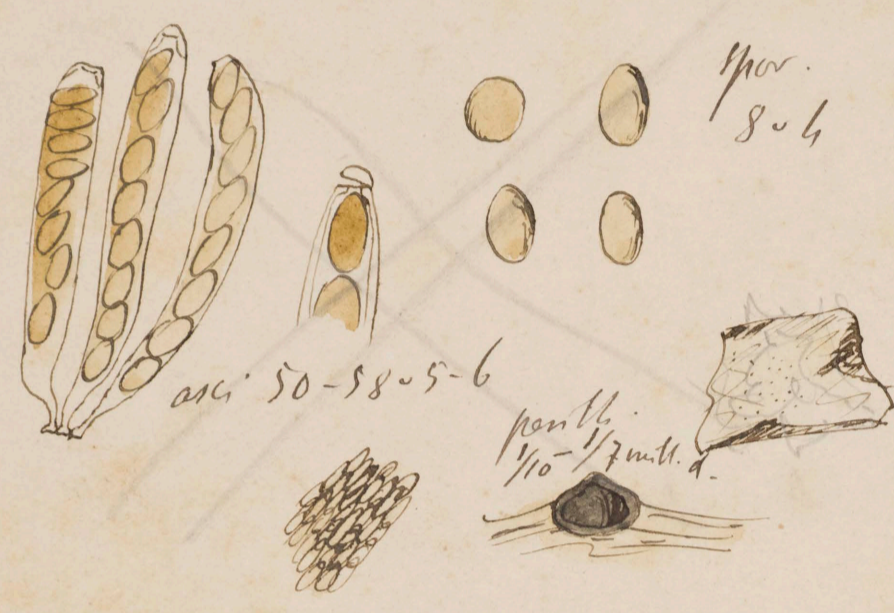 spor.
8 ᴗ 4
asci 50-58 ᴗ 5-6
perith.
1/10-1/7 mill. d.